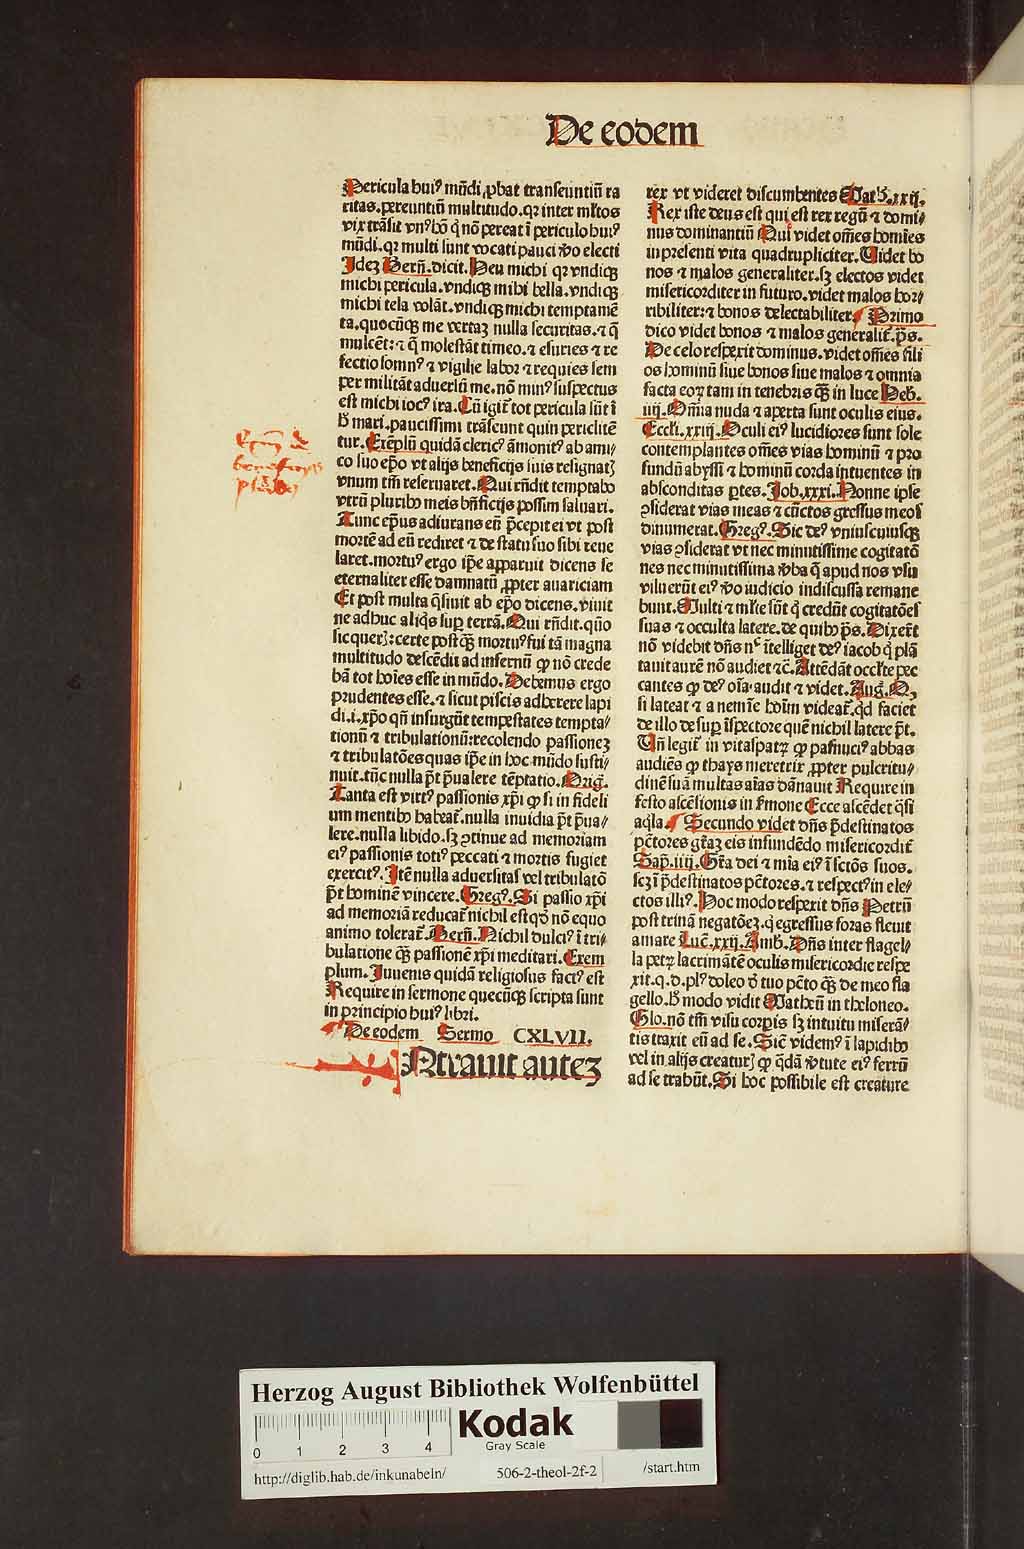 De eodem
Pericula huiꝰ mũdi ꝓbat transeuntiũ ra
ritas. pereuntiũ multitudo. qꝛ inter mltos
vix trãsit vnꝰ hõ q̇ nõ pereat ĩ periculo huiꝰ
mũdi. qꝛ multi sunt vocati pauci v̓o electi
Idez Berñ. dicit. Heu michi qꝛ vndiqꝫ
michi pericula. vndiqꝫ mihi bella. vndiqꝫ
michi tela volãt. vndiqꝫ michi temptamẽ
ta. quocũqꝫ me vertaz nulla securitas. ⁊ q̃
mulcẽt: ⁊ q̃ molestãt timeo. ⁊ esuries ⁊ re
fectio somnꝰ ⁊ vigilie labor ⁊ requies sem
per militãt aduersũ me. nõ minꝰ suspectus
est michi iocꝰ ira. Cũ igit̃ tot pericula sũt ĩ
h̓ mari. paucissimi trãseunt quin periclitẽ
tur. Exẽplũ quidã clericꝰ ãmonitꝰ ab ami⸗
co suo ep̃o vt alijs beneficijs suis resignatꝫ
vnum tm̃ reseruaret. Qui rñdit temptabo
vtrũ pluribꝰ meis bñficijs possim saluari.
Tunc ep̃us adiurans eũ p̃cepit ei vt post
mortẽ ad eũ rediret ⁊ de statu suo sibi reue
laret. mortuꝰ ergo ip̃e apparuit dicens se
eternaliter esse damnatũ ꝓpter auariciam
Et post multa q̃siuit ab ep̃o dicens. viuit
ne adhuc aliq̃s suꝑ terrã. Qui rñdit. quõ
sic querꝫ: certe postqꝫ mortuꝰ fui tã magna
multitudo descẽdit ad infernũ ꝙ nõ crede
bã tot hoĩes esse in mũdo. Debemus ergo
prudentes esse. ⁊ sicut piscis adherere lapi
di. i. xp̃o qñ insurgũt tempestates tempta⸗
tionũ ⁊ tribulationũ: recolendo passionez
⁊ tribulatões quas ip̃e in hoc mũdo susti⸗
nuit. tũc nulla p̃t p̃ualere tẽptatio. Orig̃.
Tanta est virtꝰ passionis xp̃i ꝙ si in fideli
um mentibꝰ habeat̃. nulla inuidia p̃t p̃ua⸗
lere. nulla libido. sꝫ ꝯtinue ad memoriam
eiꝰ passionis totiꝰ peccati ⁊ mortis fugiet
exercitꝰ. Itẽ nulla aduersitas vel tribulatõ
p̃t hominẽ vincere. Gregꝰ. Si passio xp̃i
ad memoriã reducat̃ nichil est qd̓ nõ equo
animo tolerat̃. Berñ. Nichil dulciꝰ ĩ tri⸗
bulatione qꝫ passionẽ xp̃i meditari. Exem
plum. Iuuenis quidã religiosus factꝰ est
Require in sermone quecũqꝫ scripta sunt
in principio huiꝰ libri.
De eodem Sermo CXLVII.
Ntrauit autez
rex vt videret discumbentes Math̓. xxij.
Rex iste deus est qui est rex regũ ⁊ domi⸗
nus dominantiũ Qui videt oẽs homĩes
in presenti vita quadrupliciter. Videt bo
nos ⁊ malos generaliter. sꝫ electos videt
misericorditer in futuro. videt malos hor⸗
ribiliter: ⁊ bonos delectabiliter. Primo
dico videt bonos ⁊ malos generalit̃. p̃s.
De celo respexit dominus. videt oẽs fili
os hominũ siue bonos siue malos ⁊ omnia
facta eoꝝ tam in tenebris qꝫ in luce Heb̓.
iiij. Om̃ia nuda ⁊ aperta sunt oculis eius.
Eccli. xxiij. Oculi eiꝰ lucidiores sunt sole
contemplantes oẽs vias hominũ ⁊ pro
fundũ abyssi ⁊ hominũ corda intuentes in
absconditas ꝑtes. Job. xxxi. Nonne ipse
ꝯsiderat vias meas ⁊ cũctos gressus meos
dinumerat. Gregꝰ. Sic deꝰ vniuscuiusqꝫ
vias ꝯsiderat vt nec minutissime cogitatõ
nes nec minutissima v̓ba q̃ apud nos vsu
viluerũt eiꝰ v̓o iudicio indiscussa remane
bunt. Multi ⁊ mlte sũt q̇ credũt cogitatões
suas ⁊ occulta latere. de quibꝰ p̃s. Dixerũt
nõ videbit dñs nͨ ĩtelliget deꝰ iacob q̇ plã
tauit aurẽ nõ audiet ⁊c̃. Attẽdãt occlte pec
cantes ꝙ deꝰ oĩa audit ⁊ videt. Aug̃. O,
si lateat ⁊ a nemĩe hoĩm videat̃. qd̓ faciet
de illo desuꝑ ĩspectore quẽ nichil latere p̃t.
Vñ legit̃ in vitaspatꝝ ꝙ pafnuciꝰ abbas
audiẽs ꝙ thays meretrix ꝓpter pulcritu⸗
dinẽ suã multas aĩas dãnauit Require in
festo ascẽsionis in s̓mone Ecce ascẽdet q̃si
aq̃la. Secundo videt dñs p̃destinatos
pctõres gr̃az eis infundẽdo misericordit̃
Sap̃. iiij. Gr̃a dei ⁊ mĩa eiꝰ ĩ sctõs suos.
scꝫ ĩ p̃destinatos pctõres. ⁊ respectꝰ in ele⸗
ctos illiꝰ. Hoc modo respexit dñs Petrũ
post trinã negatõez. q̇ egressus foras fleuit
amare Luc̃. xxij. Amb̓. Dñs inter flagel⸗
la petꝝ lacrimãtẽ oculis misericordie respe
xit. q. d. plꝰ doleo d̓ tuo pctõ qꝫ de meo fla
gello. h̓ modo vidit Matheũ in theloneo.
Glo. nõ tm̃ visu corpis sꝫ intuitu miserã⸗
tis traxit eũ ad se. Sic̃ videmꝰ ĩ lapidibꝰ
vel in alijs creaturꝫ ꝙ q̃dã v̓tute eiꝰ ferrũ
ad se trahũt. Si hoc possibile est creature
Herzog August Bibliothek Wolfenbüttel
Kodak
Gray Scale
0 1 2 3 4
http://diglib.hab.de/inkunabeln/ 506-2-theol-2f-2 /start.htm